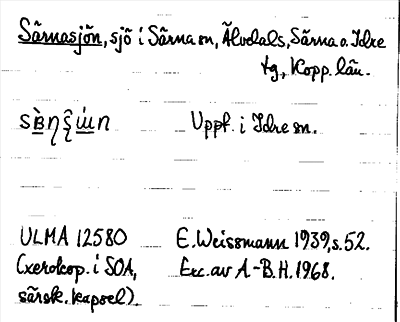 Särnasjön, sjö i Särna sn, Älvdals, Särna o. Idre
tg, Kopp. län.
Uppt. i Idre sn.
ULMA 12580 E. Weissmann 1939, s. 52.
(xerokop. i SOA, Exc. av A-B. H. 1968.
särsk. kapsel)